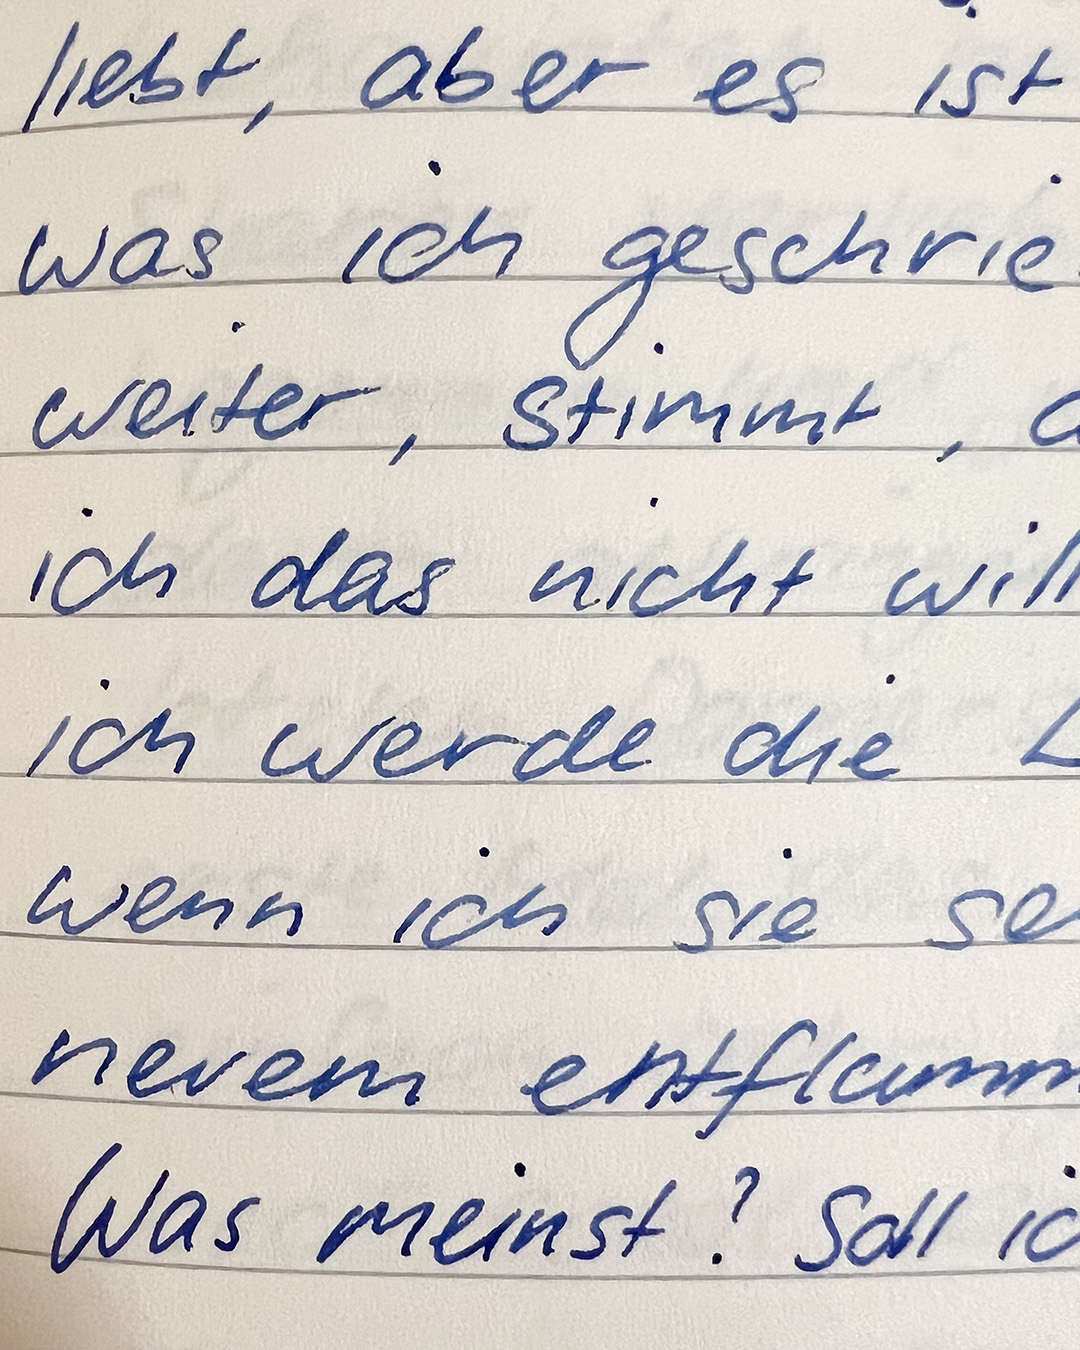 liebt, aber es ist
was ich geschrie
weiter, stimmt, a
ich das nicht will
ich werde die L
wenn ich sie se
neuem entflamm
Was meinst? Soll ic